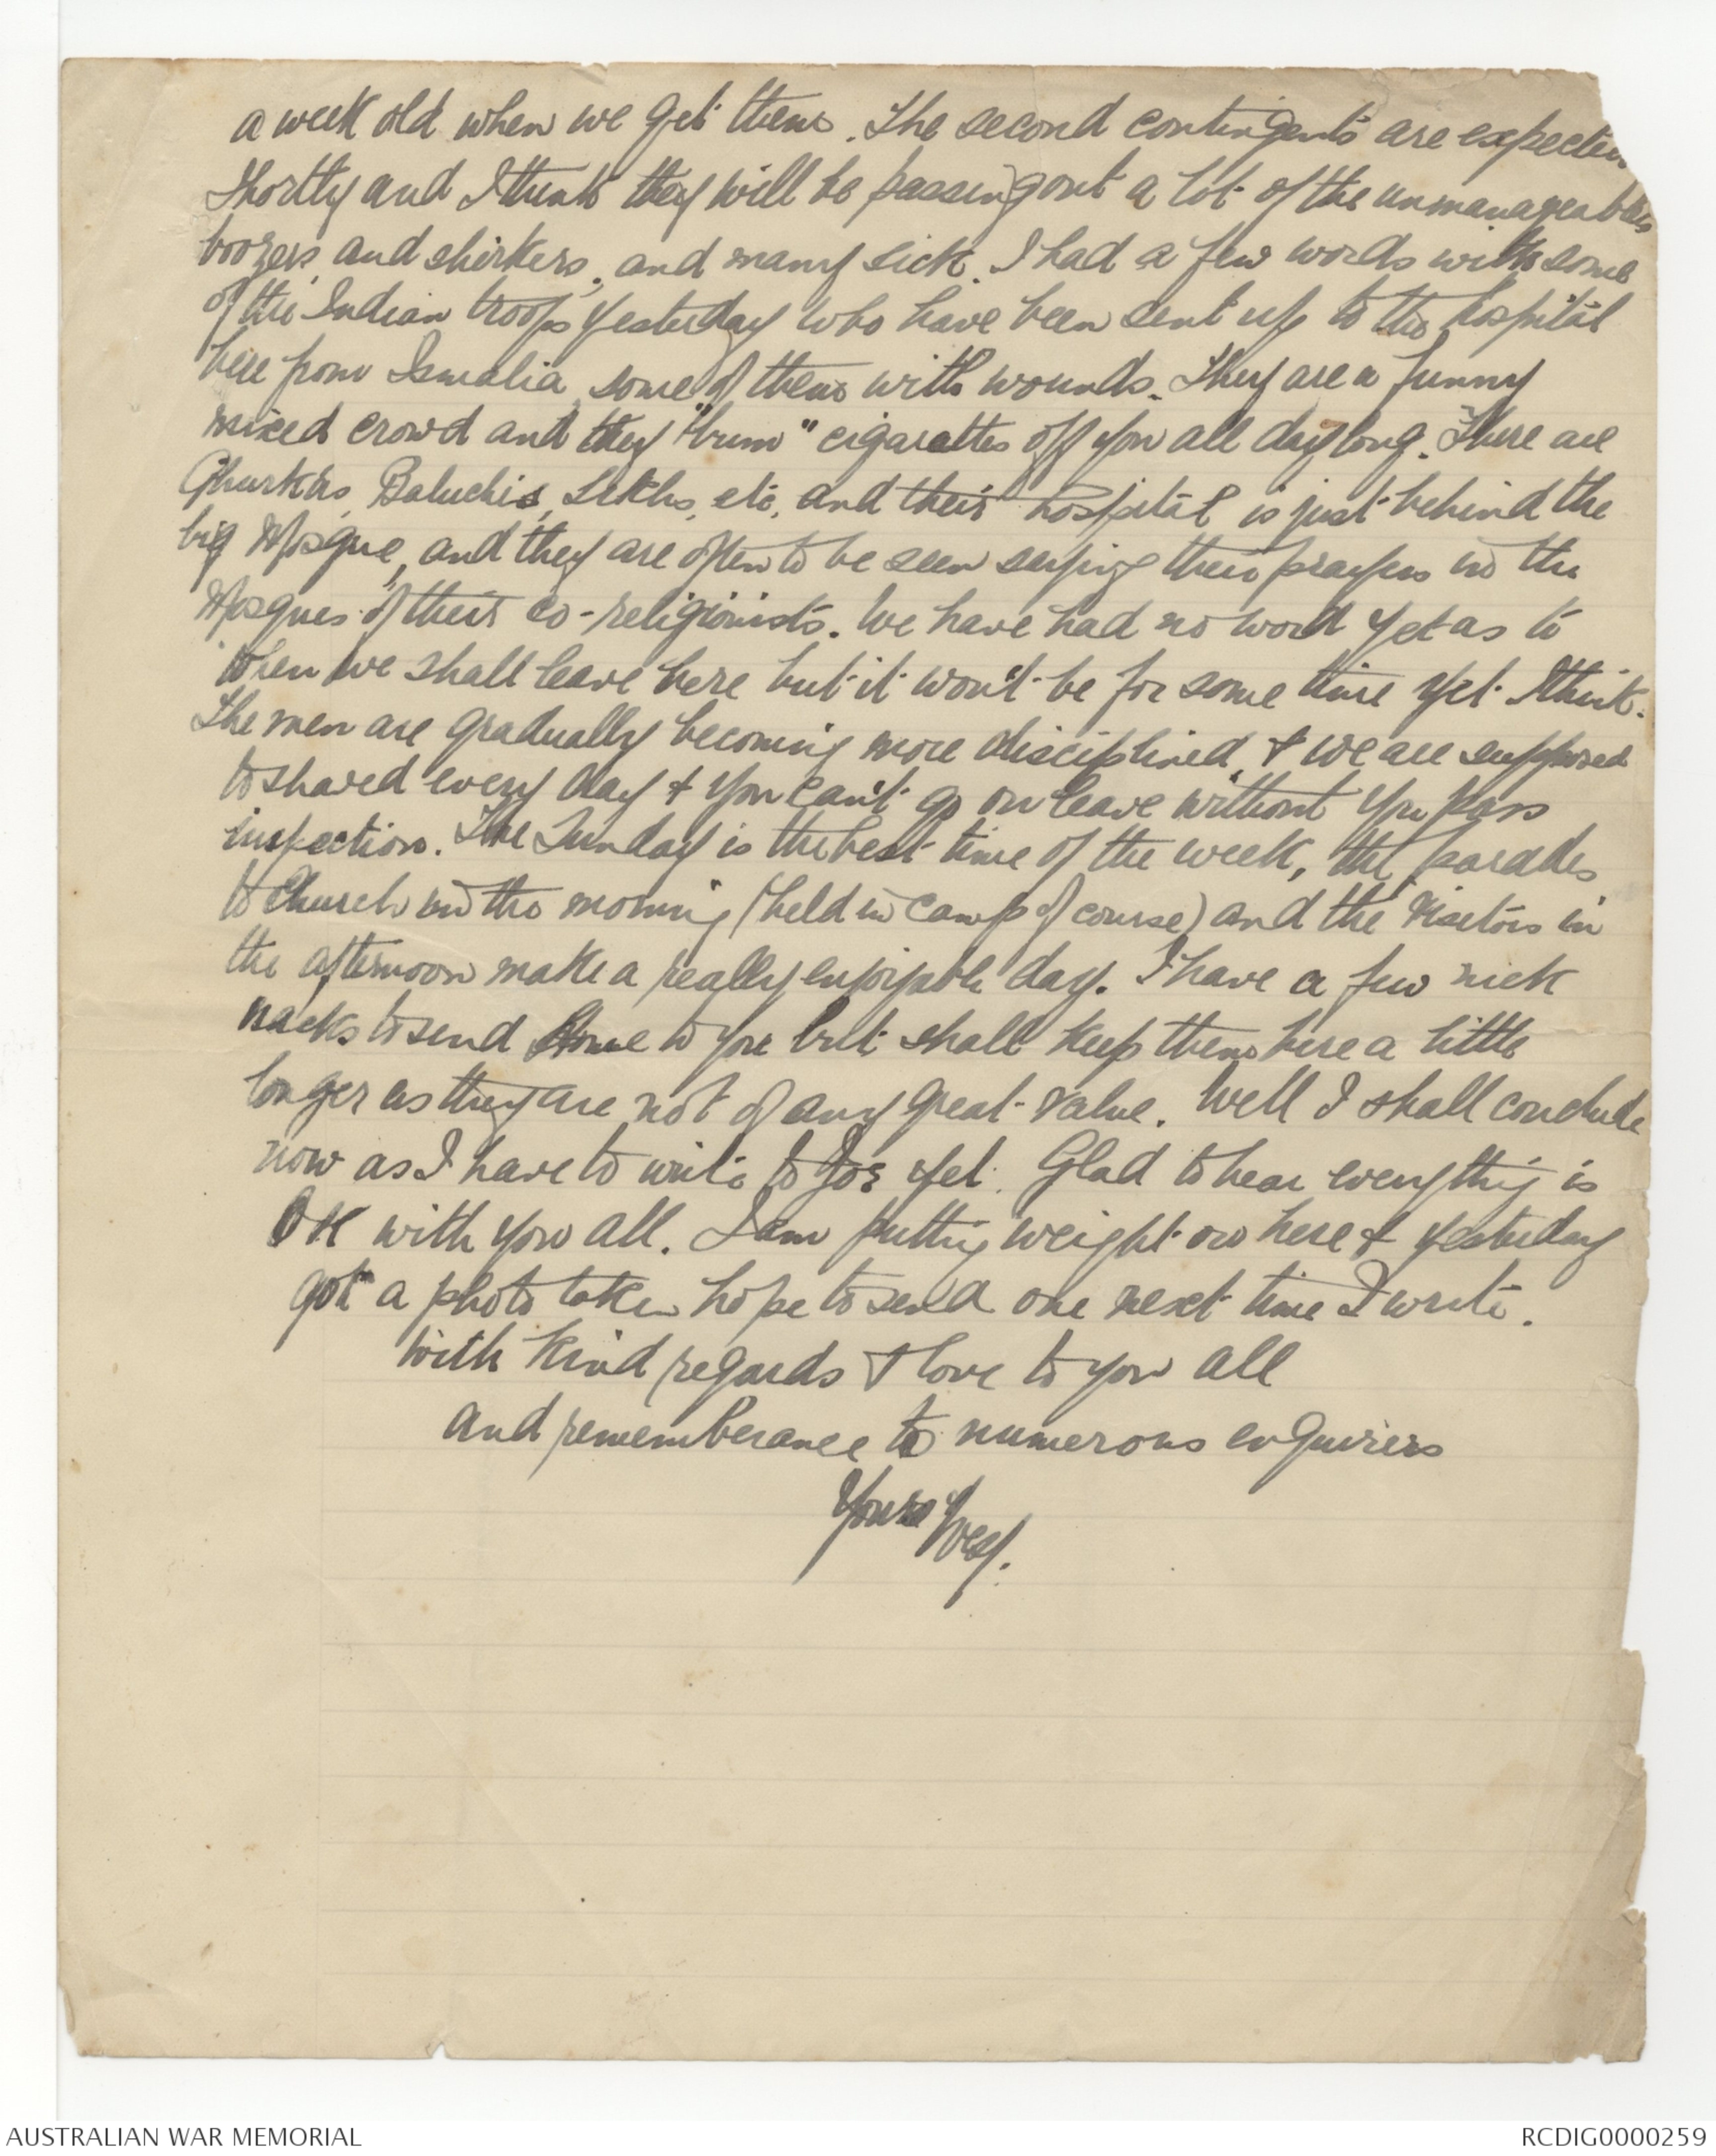 a week old when we get them. The second contingents are expected
shortly and I think they will be passing out a lot of the unmanageables
boozers, and shirkers, and many sick. I had a few words with some
of the Indian troops yesterday who have been sent up to the hospital
here from Ismalia, some of them with wounds. They are a funny
mixed crowd and they "bum" cigarettes off you all day long. There are
Ghurkas, Baluchis, Sikhs, etc, and their hospital is just behind the
big Mosque, and they are often to be seen saying their prayers in the
Mosques of their co-religionists. We have had no word yet as to
when we shall leave here but it won't be for some time yet I think.
The men are gradually becoming more disciplined, & we are supposed
to shaved every day & you can't go on leave without you pass
inspection. The Sunday is the best time of the week, the parades
to Church in the morning (held in camp of course) and the Visitors in
the afternoon make a really enjoyable day. I have a few nick
nacks to send home to you but shall keep them here a little
longer as they are not of any great value. Well I shall conclude
now as I have to write to Joe yet. Glad to hear everything is
OK with you all. I am putting weight on here & yesterday
got a photo taken hope to send one next time I write.
With kind regards & love to you all
and rememberance to numerous enquirers
Yours
AUSTRALIAN WAR MEMORIAL
RCDIG0000259